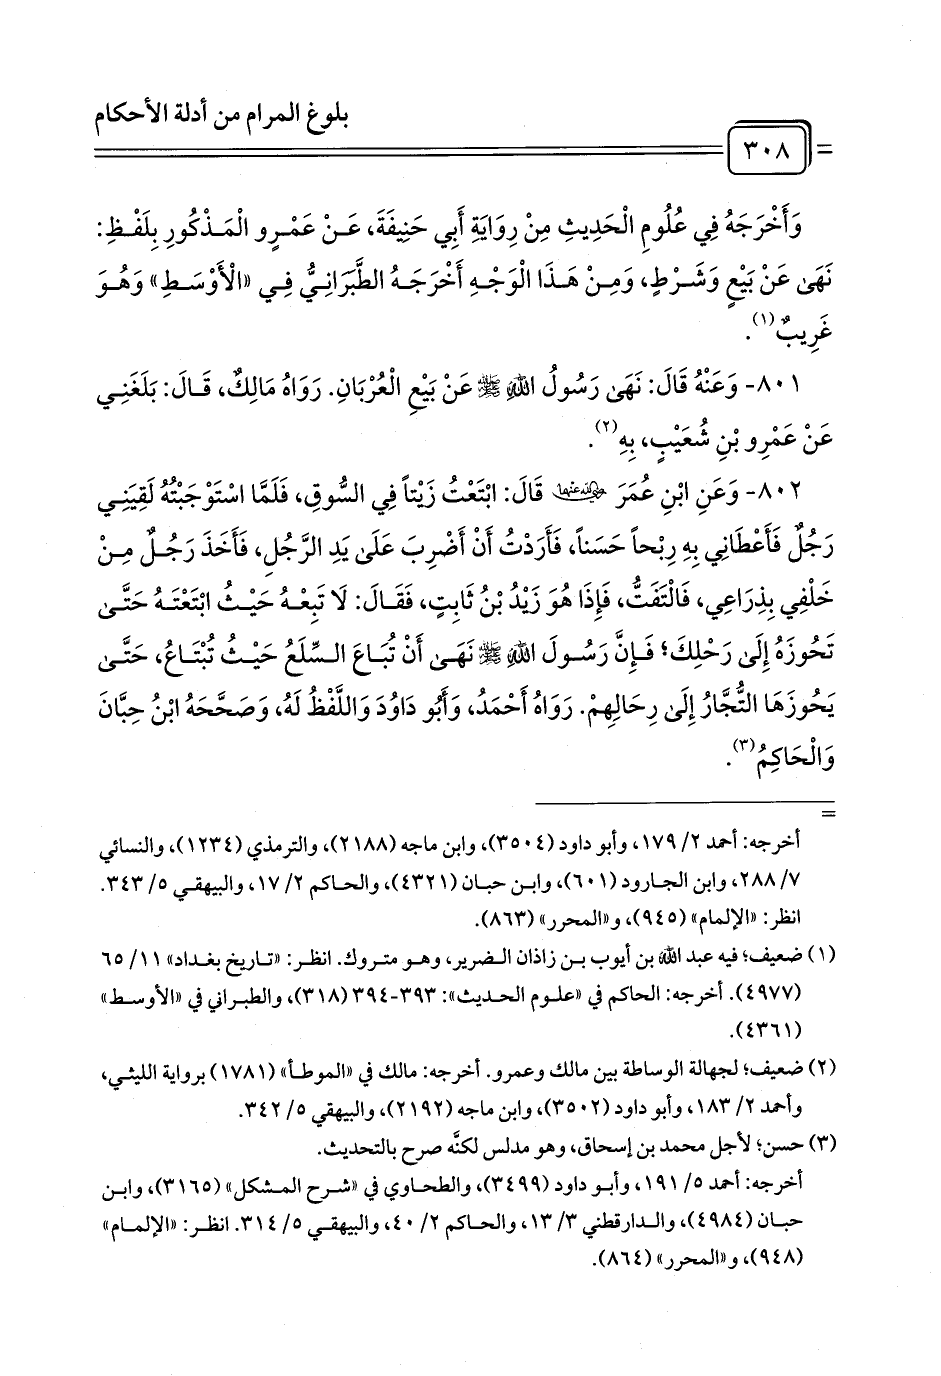 بلوغ المرام من أدلة الأحكام
= ٣٠٨
وَأَخْرَجَهُ فِي عُلُومِ الْحَدِيثِ مِنْ رِوَايَةِ أَبِي حَنِيفَةَ، عَنْ عَمْرٍو الْمَذْكُورِ بِلَفْظِ:
نَهَىٰ عَنْ بَيْعٍ وَشَرْطٍ، وَمِنْ هَذَا الْوَجْهِ أَخْرَجَهُ الطَّبَرَانِيُّ فِي «الْأَوْسَطِ» وَهُوَ
غَرِيبٌ(١).
٨٠١- وَعَنْهُ قَالَ: نَهَىٰ رَسُولُ اللهِ ﷺ عَنْ بَيْعِ الْعُرْبَانِ. رَوَاهُ مَالِكٌ، قَالَ: بَلَغَنِي
عَنْ عَمْرِو بْنِ شُعَيْبٍ، بِهِ(٢).
٨٠٢- وَعَنِ ابْنِ عُمَرَ رضي الله عنهما قَالَ: ابْتَعْتُ زَيْتاً فِي السُّوقِ، فَلَمَّا اسْتَوْجَبْتُهُ لَقِيَنِي
رَجُلٌ فَأَعْطَانِي بِهِ رِبْحاً حَسَناً، فَأَرَدْتُ أَنْ أَضْرِبَ عَلَىٰ يَدِ الرَّجُلِ، فَأَخَذَ رَجُلٌ مِنْ
خَلْفِي بِذِرَاعِي، فَالْتَفَتُّ، فَإِذَا هُوَ زَيْدُ بْنُ ثَابِتٍ، فَقَالَ: لَا تَبِعْهُ حَيْثُ ابْتَعْتَهُ حَتَّىٰ
تَحُوزَهُ إِلَىٰ رَحْلِكَ؛ فَإِنَّ رَسُولَ اللهِ ﷺ نَهَىٰ أَنْ تُبَاعَ السِّلَعُ حَيْثُ تُبْتَاعُ، حَتَّىٰ
يَحُوزَهَا التُّجَّارُ إِلَىٰ رِحَالِهِمْ. رَوَاهُ أَحْمَدُ، وَأَبُو دَاوُدَ وَاللَّفْظُ لَهُ، وَصَحَّحَهُ ابْنُ حِبَّانَ
وَالْحَاكِمُ(٣).
=
أخرجه: أحمد ٢/ ١٧٩، وأبو داود (٣٥٠٤)، وابن ماجه (٢١٨٨)، والترمذي (١٢٣٤)، والنسائي
٧/ ٢٨٨، وابن الجارود (٦٠١)، وابن حبان (٤٣٢١)، والحاكم ٢/ ١٧، والبيهقي ٥/ ٣٤٣.
انظر: «الإلمام» (٩٤٥)، و«المحرر» (٨٦٣).
(١) ضعيف؛ فيه عبد الله بن أيوب بن زاذان الضرير، وهو متروك. انظر: «تاريخ بغداد» ١١/ ٦٥
(٤٩٧٧). أخرجه: الحاكم في «علوم الحديث»: ٣٩٣-٣٩٤ (٣١٨)، والطبراني في «الأوسط»
(٤٣٦١).
(٢) ضعيف؛ لجهالة الوساطة بين مالك وعمرو. أخرجه: مالك في «الموطأ» (١٧٨١) برواية الليثي،
وأحمد ٢/ ١٨٣، وأبو داود (٣٥٠٢)، وابن ماجه (٢١٩٢)، والبيهقي ٥/ ٣٤٢.
(٣) حسن؛ لأجل محمد بن إسحاق، وهو مدلس لكنَّه صرح بالتحديث.
أخرجه: أحمد ٥/ ١٩١، وأبو داود (٣٤٩٩)، والطحاوي في «شرح المشكل» (٣١٦٥)، وابن
حبان (٤٩٨٤)، والدارقطني ٣/ ١٣، والحاكم ٢/ ٤٠، والبيهقي ٥/ ٣١٤. انظر: «الإلمام»
(٩٤٨)، و«المحرر» (٨٦٤).